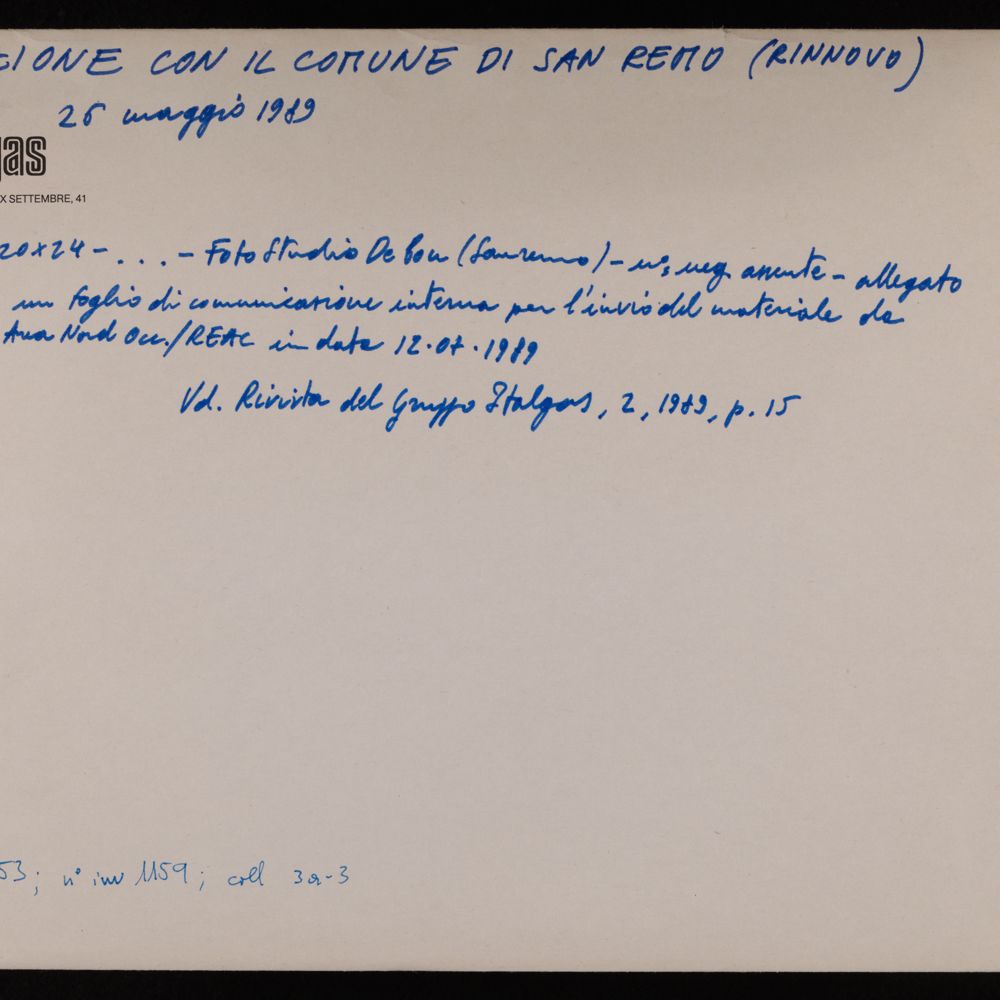 SIONE CON IL COMUNE DI SAN REMO (RINNOVO)
26 maggio 1989
gas
X SETTEMBRE, 41
20x24 - . . . - Foto Studio De Bon (Sanremo) - n°; neg assente - allegato
un foglio di comunicazione interna per l'invio del materiale da
Area Nord Occ./REAC in data 12.07.1989
Vd. Rivista del Gruppo Italgas, 2, 1989, p. 15
53; n° inv 1159; coll 3a-3